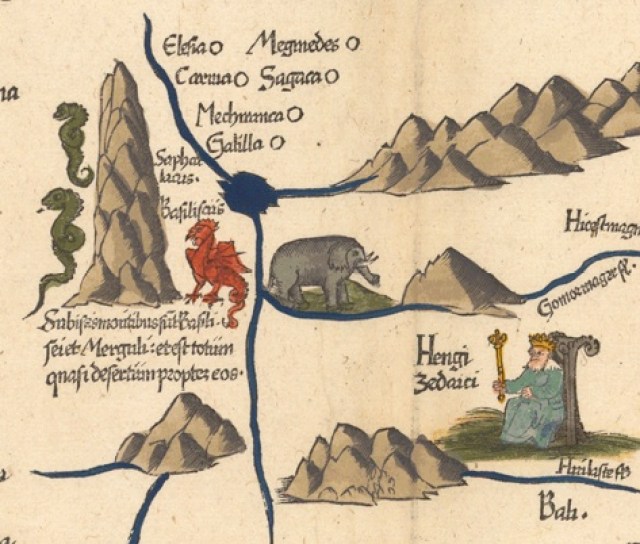 Elesia Megmedes
Carma Sagaca
Mechmnca
Galilla
Saphat
lacus.
Basiliscus
Hicest magn
Gomormagre fl.
Sub iszs montibus sūt Basili
sci et Merguli: et est totum
quasi desertum propter eos.
Hengi
Zedaici
Bali.